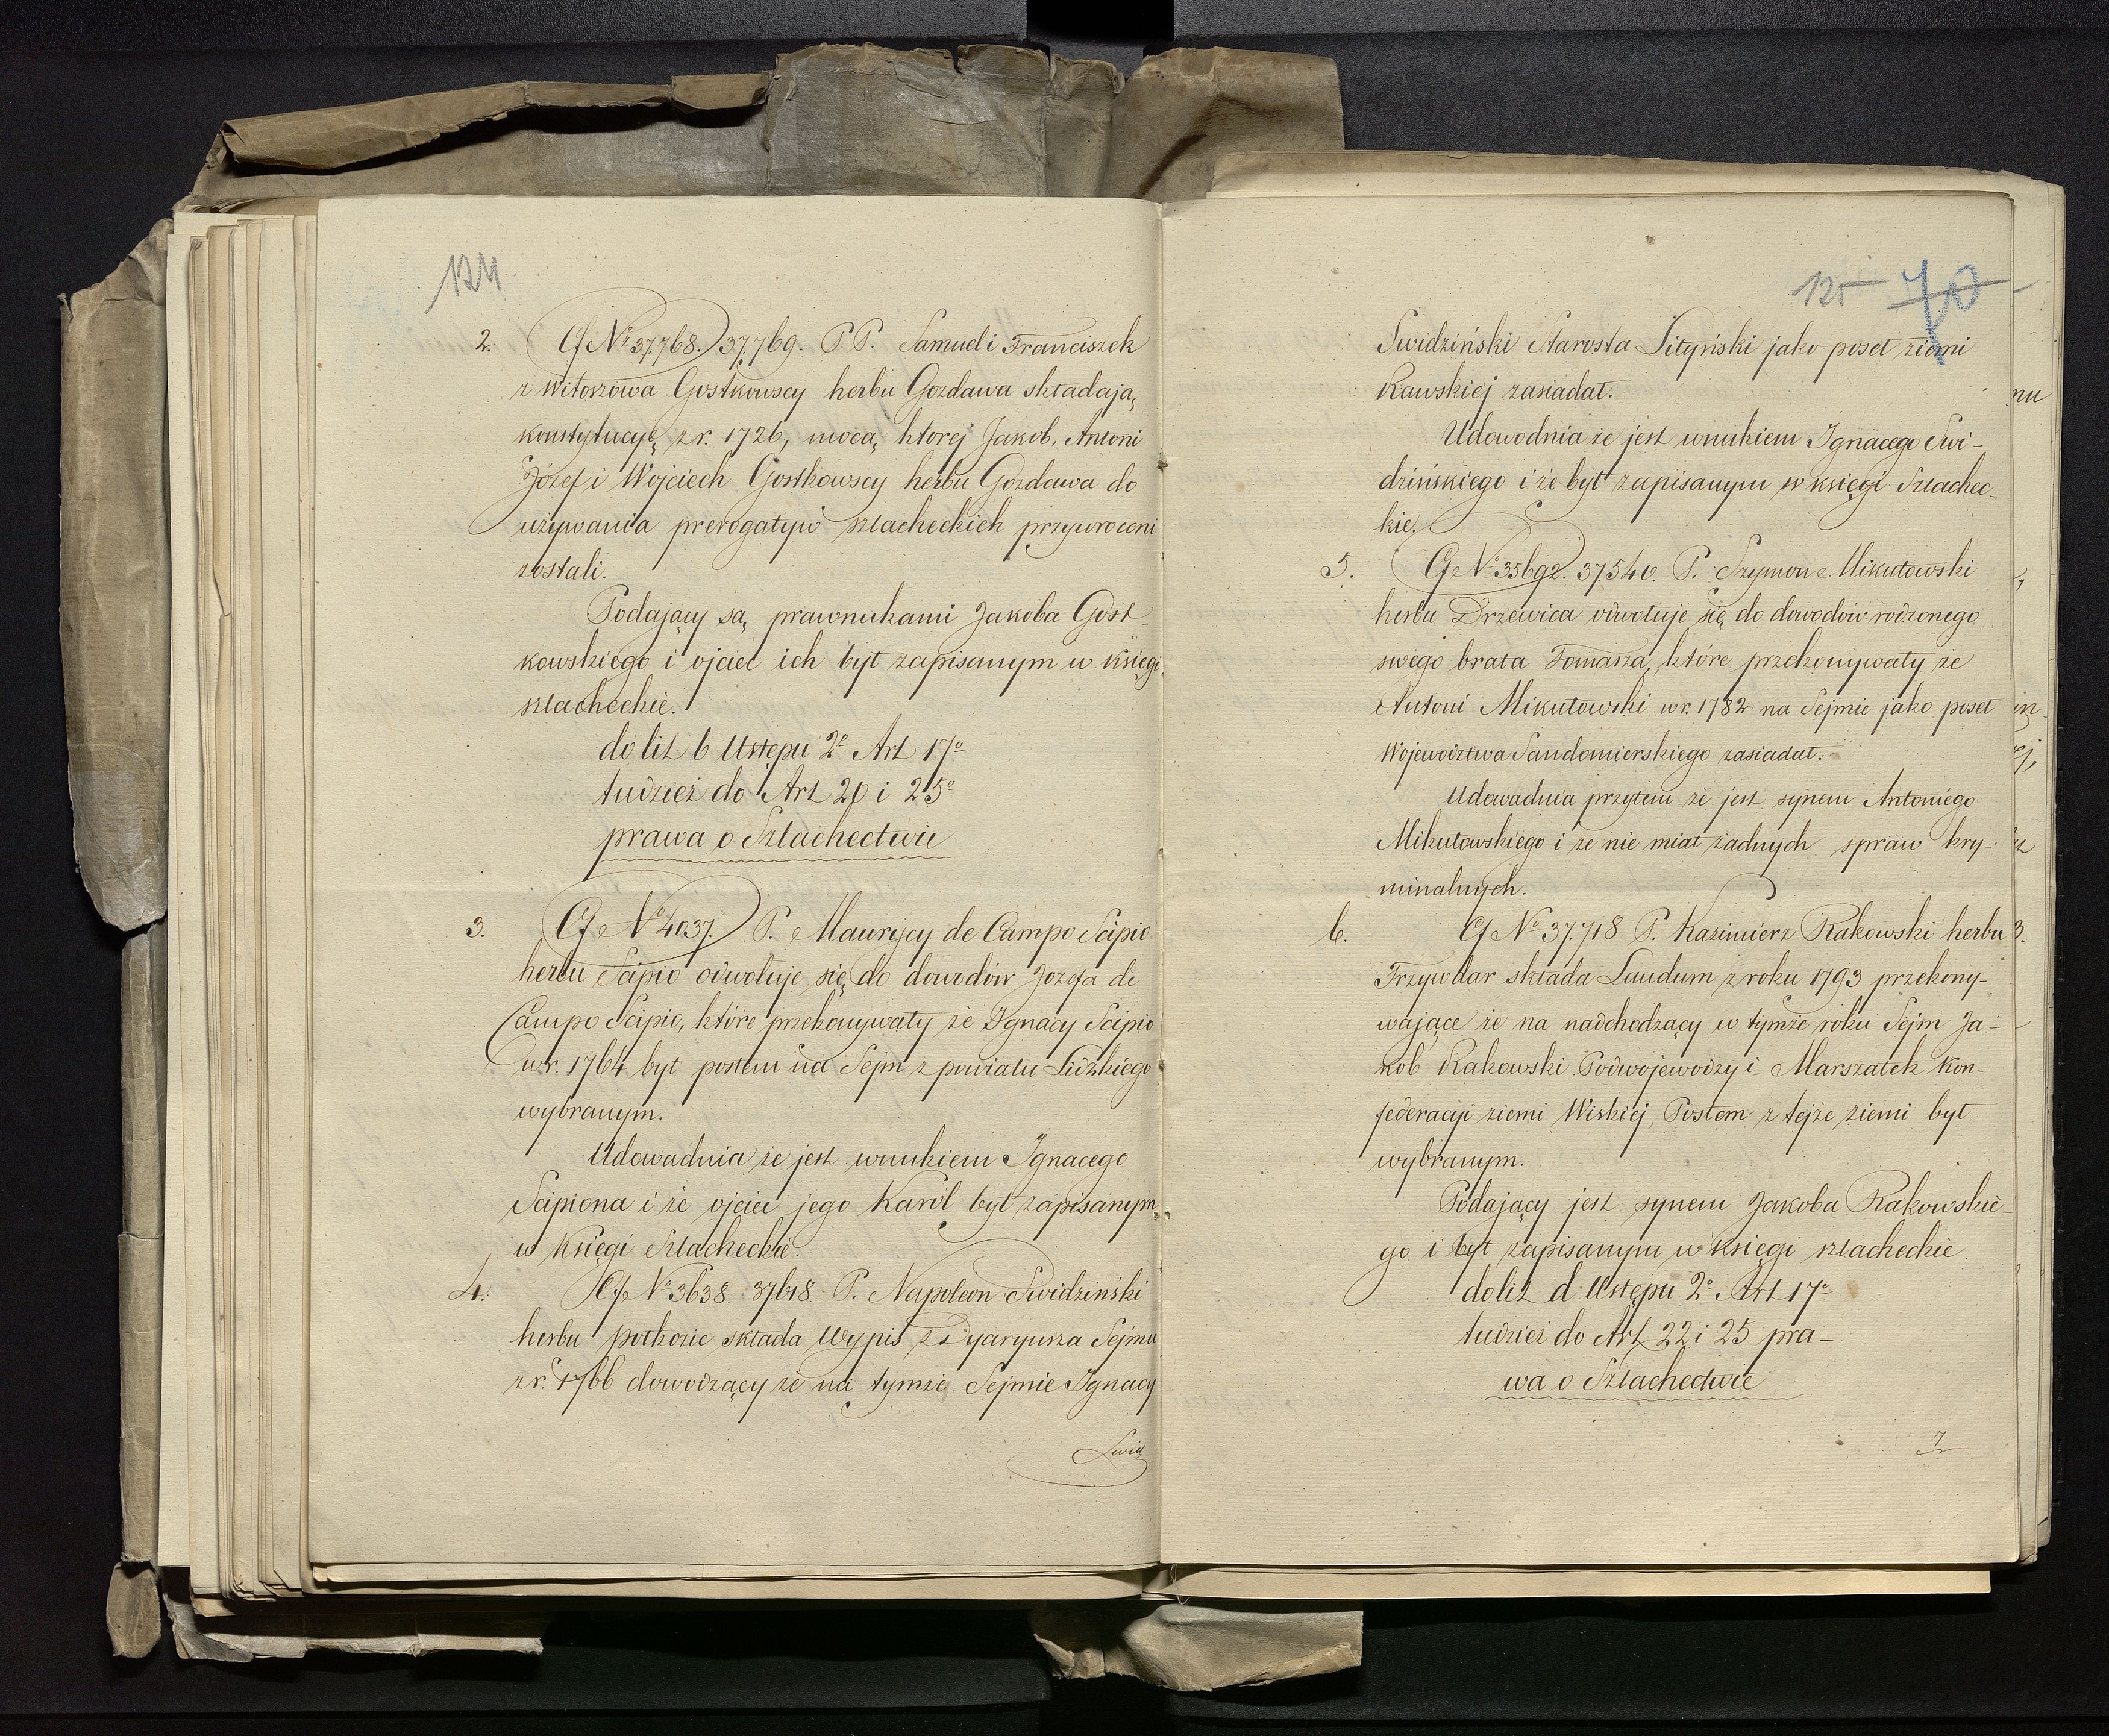 124
2. Cf No 37.768. 37.769. PP. Samuel i Franciszek
z Witoszowa Gostkowscy herbu Gozdawa składają
konstytucyę z r. 1726, mocą ktorej Jakob, Antoni
Józef i Wojciech Gostkowscy herbu Gozdawa do
używania prerogatyw szlacheckich przywroceni
zostali.
Podający są prawnukami Jakoba Gost-
kowskiego i ojciec ich był zapisanym w księgi
szlacheckie.
do lit b Ustępu 2o Art 17o
tudzież do Art 20 i 25o
prawa o Szlachectwie
3. Cf No 4037. P. Maurycy de Campo Scipio
herbu Scipio odwołuje się do dowodów Jozefa de
Campo Scipio, które przekonywały że Ignacy Scipio
w r. 1764 był posłem na Sejm z powiatu Lidzkiego
wybranym.
Udowadnia że jest wnukiem Ignacego
Scipiona i że ojciec jego Karól był zapisanym
w Księgi Szlacheckie.
4. Cf No 3638. 37618 P. Napoleon Swidziński
herbu pothozie składa Wypis z Dyaryusza Sejmu
z r. 1766 dowodzący że na tymże Sejmie Ignacy
Swidz
125 70
Swidziński Starosta Lityński jako poseł ziemi
Rawskiej zasiadał.
Udowodnia że jest wnukiem Ignacego Swi-
dzińskiego i że był zapisanym w księgi Szlachec-
kie.
5. Cf No 35692. 37.540. P. Szymon Mikułowski
herbu Drzewica odwołuje się do dowodów rodzonego
swego brata Tomasza, które przekonywały że
Antoni Mikułowski w r. 1782 na Sejmie jako poseł
Województwa Sandomierskiego zasiadał.
Udowadnia przytem że jest synem Antoniego
Mikułowskiego i że nie miał żadnych spraw kry-
minalnych.
6. Cf No 37.718 P. Kazimierz Rakowski herbu
Trzywdar składa Laudum z roku 1793 przekony-
wające że na nadchodzący w tymże roku Sejm Ja-
kob Rakowski Podwojewodzy i Marszałek Kon-
federacyi ziemi Wiskiej, Posłem z tejże ziemi był
wybranym.
Podający jest synem Jakoba Rakowskie-
go i był zapisanym w księgi szlacheckie
do lit d Ustępu 2o Art 17o
tudzież do Art 22 i 25 pra-
wa o Szlachectwie
7